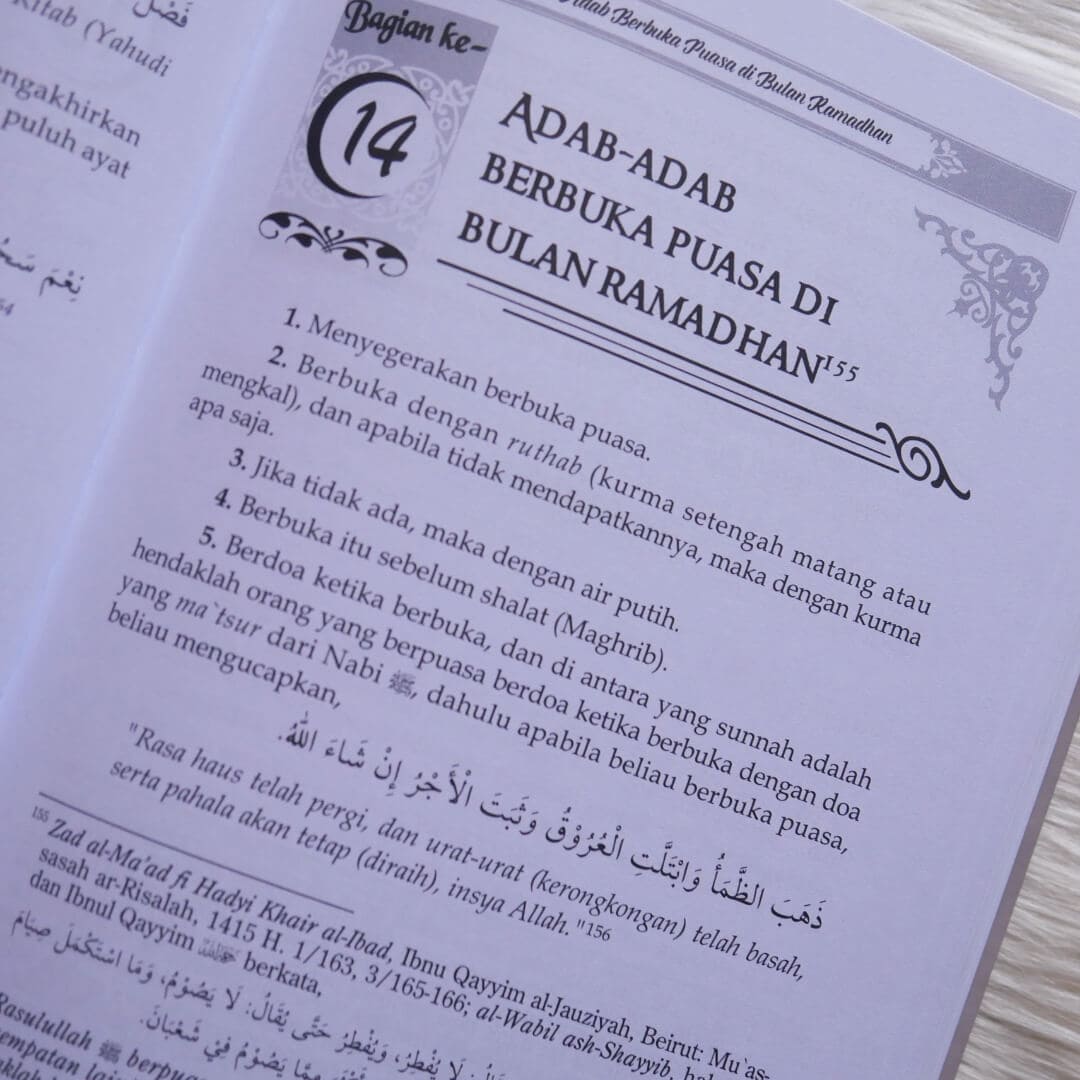 فَضْلُ
Kitab (Yahudi
ngakhirkan
puluh ayat
نِعْمَ
Adab Berbuka Puasa di Bulan Ramadhan
Bagian ke-
14
ADAB-ADAB
BERBUKA PUASA DI
BULAN RAMADHAN155
1. Menyegerakan berbuka puasa.
2. Berbuka dengan ruthab (kurma setengah matang atau
mengkal), dan apabila tidak mendapatkannya, maka dengan kurma
apa saja.
3. Jika tidak ada, maka dengan air putih.
4. Berbuka itu sebelum shalat (Maghrib).
5. Berdoa ketika berbuka, dan di antara yang sunnah adalah
hendaklah orang yang berpuasa berdoa ketika berbuka dengan doa
yang ma`tsur dari Nabi ﷺ, dahulu apabila beliau berbuka puasa,
beliau mengucapkan,
ذَهَبَ الظَّمَأُ وَابْتَلَّتِ الْعُرُوْقُ وَثَبَتَ الْأَجْرُ إِنْ شَاءَ اللهُ.
"Rasa haus telah pergi, dan urat-urat (kerongkongan) telah basah,
serta pahala akan tetap (diraih), insya Allah."156
155 Zad al-Ma'ad fi Hadyi Khair al-Ibad, Ibnu Qayyim al-Jauziyah, Beirut: Mu`as-
sasah ar-Risalah, 1415 H. 1/163, 3/165-166; al-Wabil ash-Shayyib,
dan Ibnul Qayyim berkata,
لَا يُفْطِرُ، وَيُفْطِرُ حَتَّى يُقَالُ: لَا يَصُوْمُ، وَمَا اسْتَكْمَلَ صِيَامَ
مِمَّا يَصُوْمُ فِيْ شَعْبَانَ.
Rasulullah ﷺ